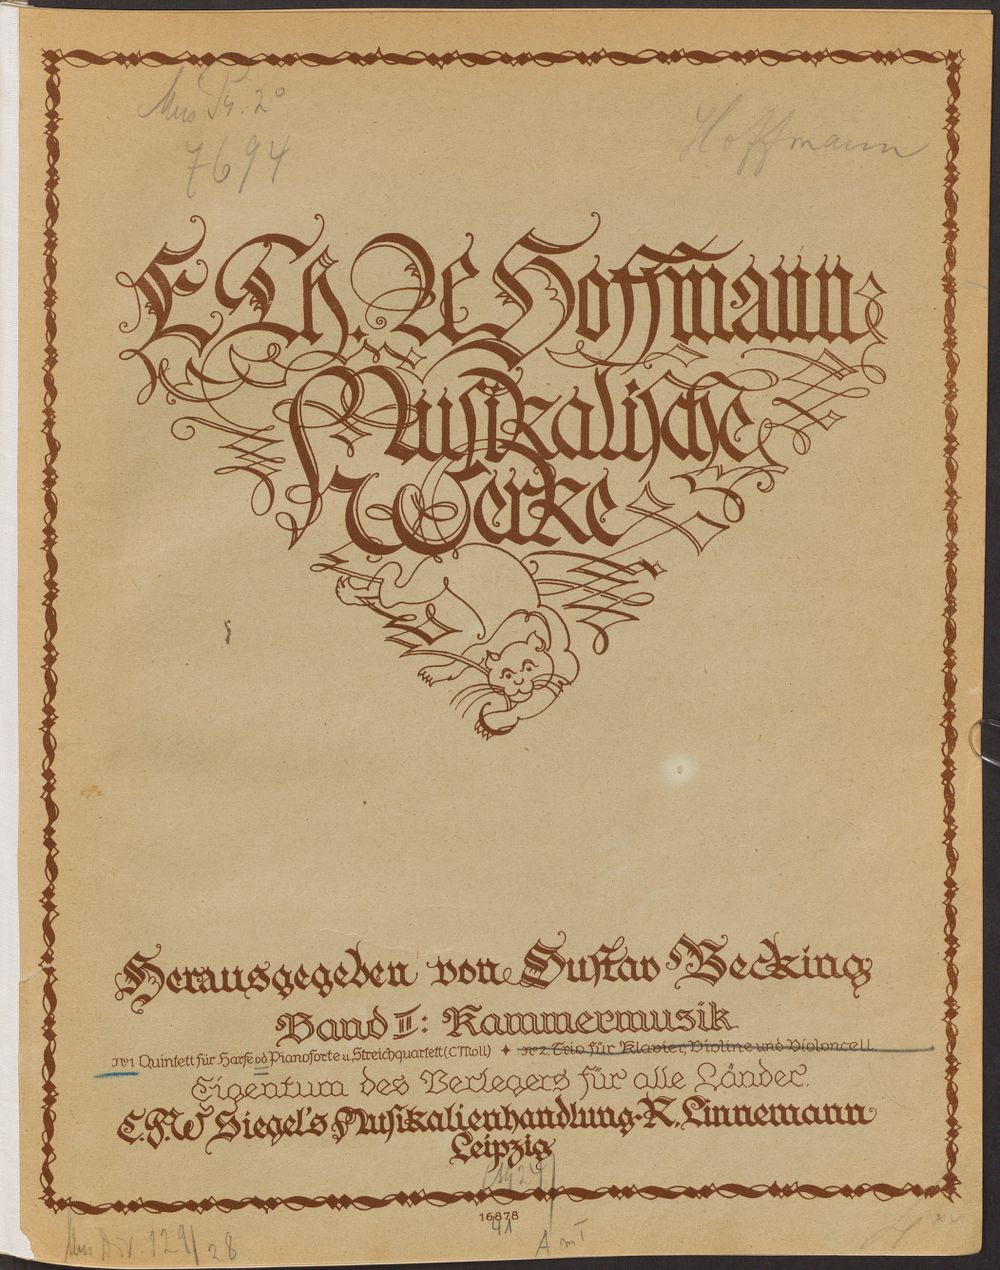 Mus Pr. 2°
7694
Hoffmann
E. Th. A Hoffmann
Musikalische
Werke
Herausgegeben von Gustav Becking
Band II: Kammermusik
No 1 Quintett für Harfe od Pianoforte u. Streichquartett (C Moll) ✦ No 2. Trio für Klavier, Violine und Violoncell.
Eigentum des Verlegers für alle Länder.
C.F.W Siegel's Musikalienhandlung · R. Linnemann
Leipzig
(1924)
16878
41
Mus Div. 129/28